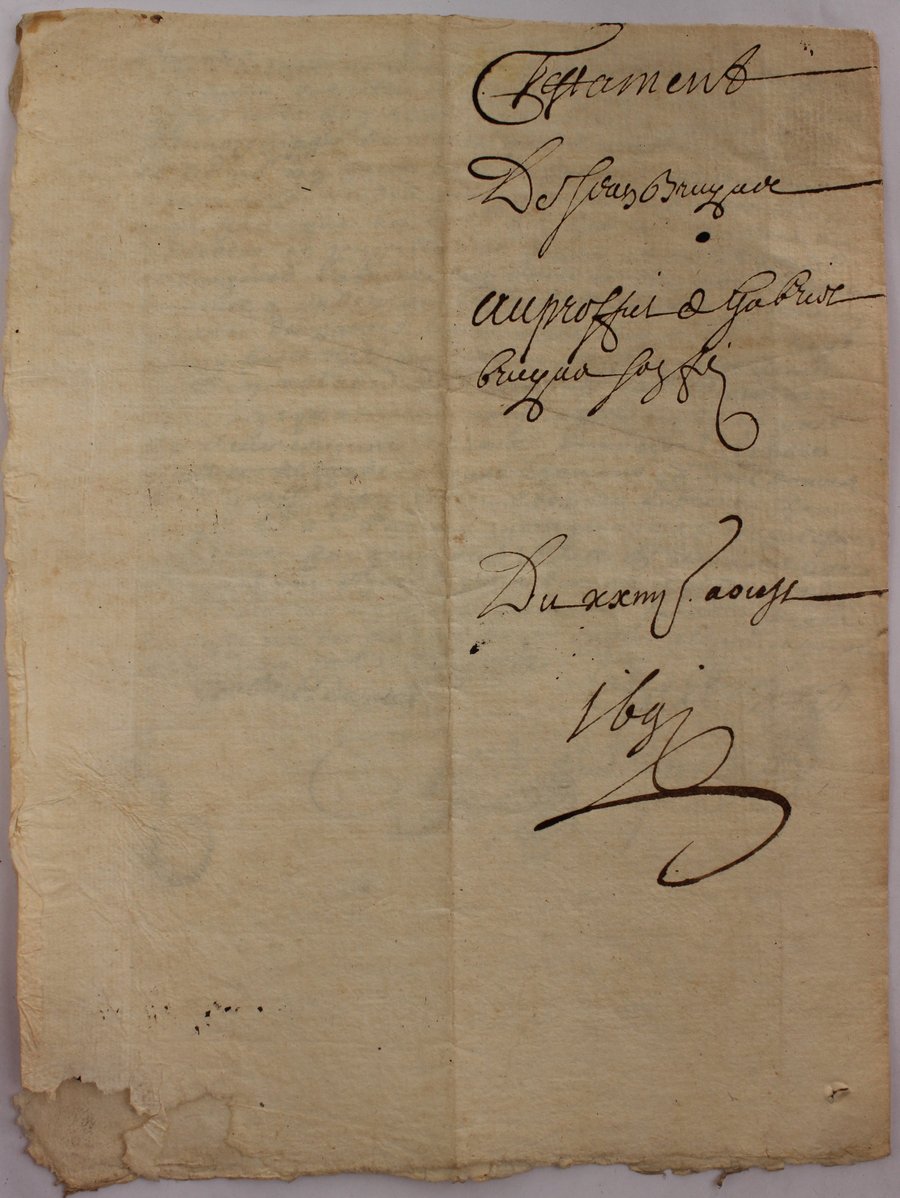 Testament
De Jean Bruyade
au proffict de Gabriel
bruyad son fi
Du xxiiij aoust
169